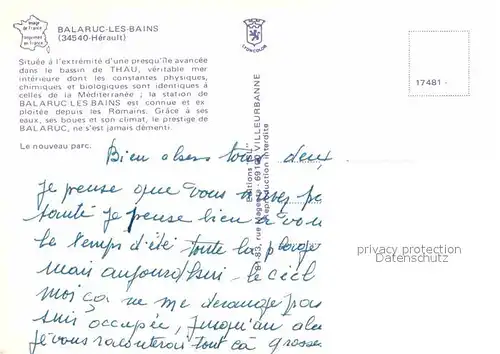 image de France
imprimée en France
BALARUC-LES-BAINS
(34540-Hérault)
LYON COLOR
Située à l'extrémité d'une presqu'île avancée
dans le bassin de THAU, véritable mer
intérieure dont les constantes physiques,
chimiques et biologiques sont identiques à
celles de la Méditerranée ; la station de
BALARUC LES BAINS est connue et ex-
ploitée depuis les Romains. Grâce à ses
eaux, ses boues et son climat, le prestige de
BALARUC, ne s'est jamais démenti.
Le nouveau parc.
17481 -
81-83, rue Magenta - 69100 VILLEURBANNE
Reproduction interdite
Bien tous deux
Je pense que vous
santé je pense bien à vous
le temps d'été toute la
mais aujourd'hui le ciel
moi ça ne me dérange pas
suis occupée, jusqu'au
je vous raconterai tout ça
privacy protection
Datenschutz